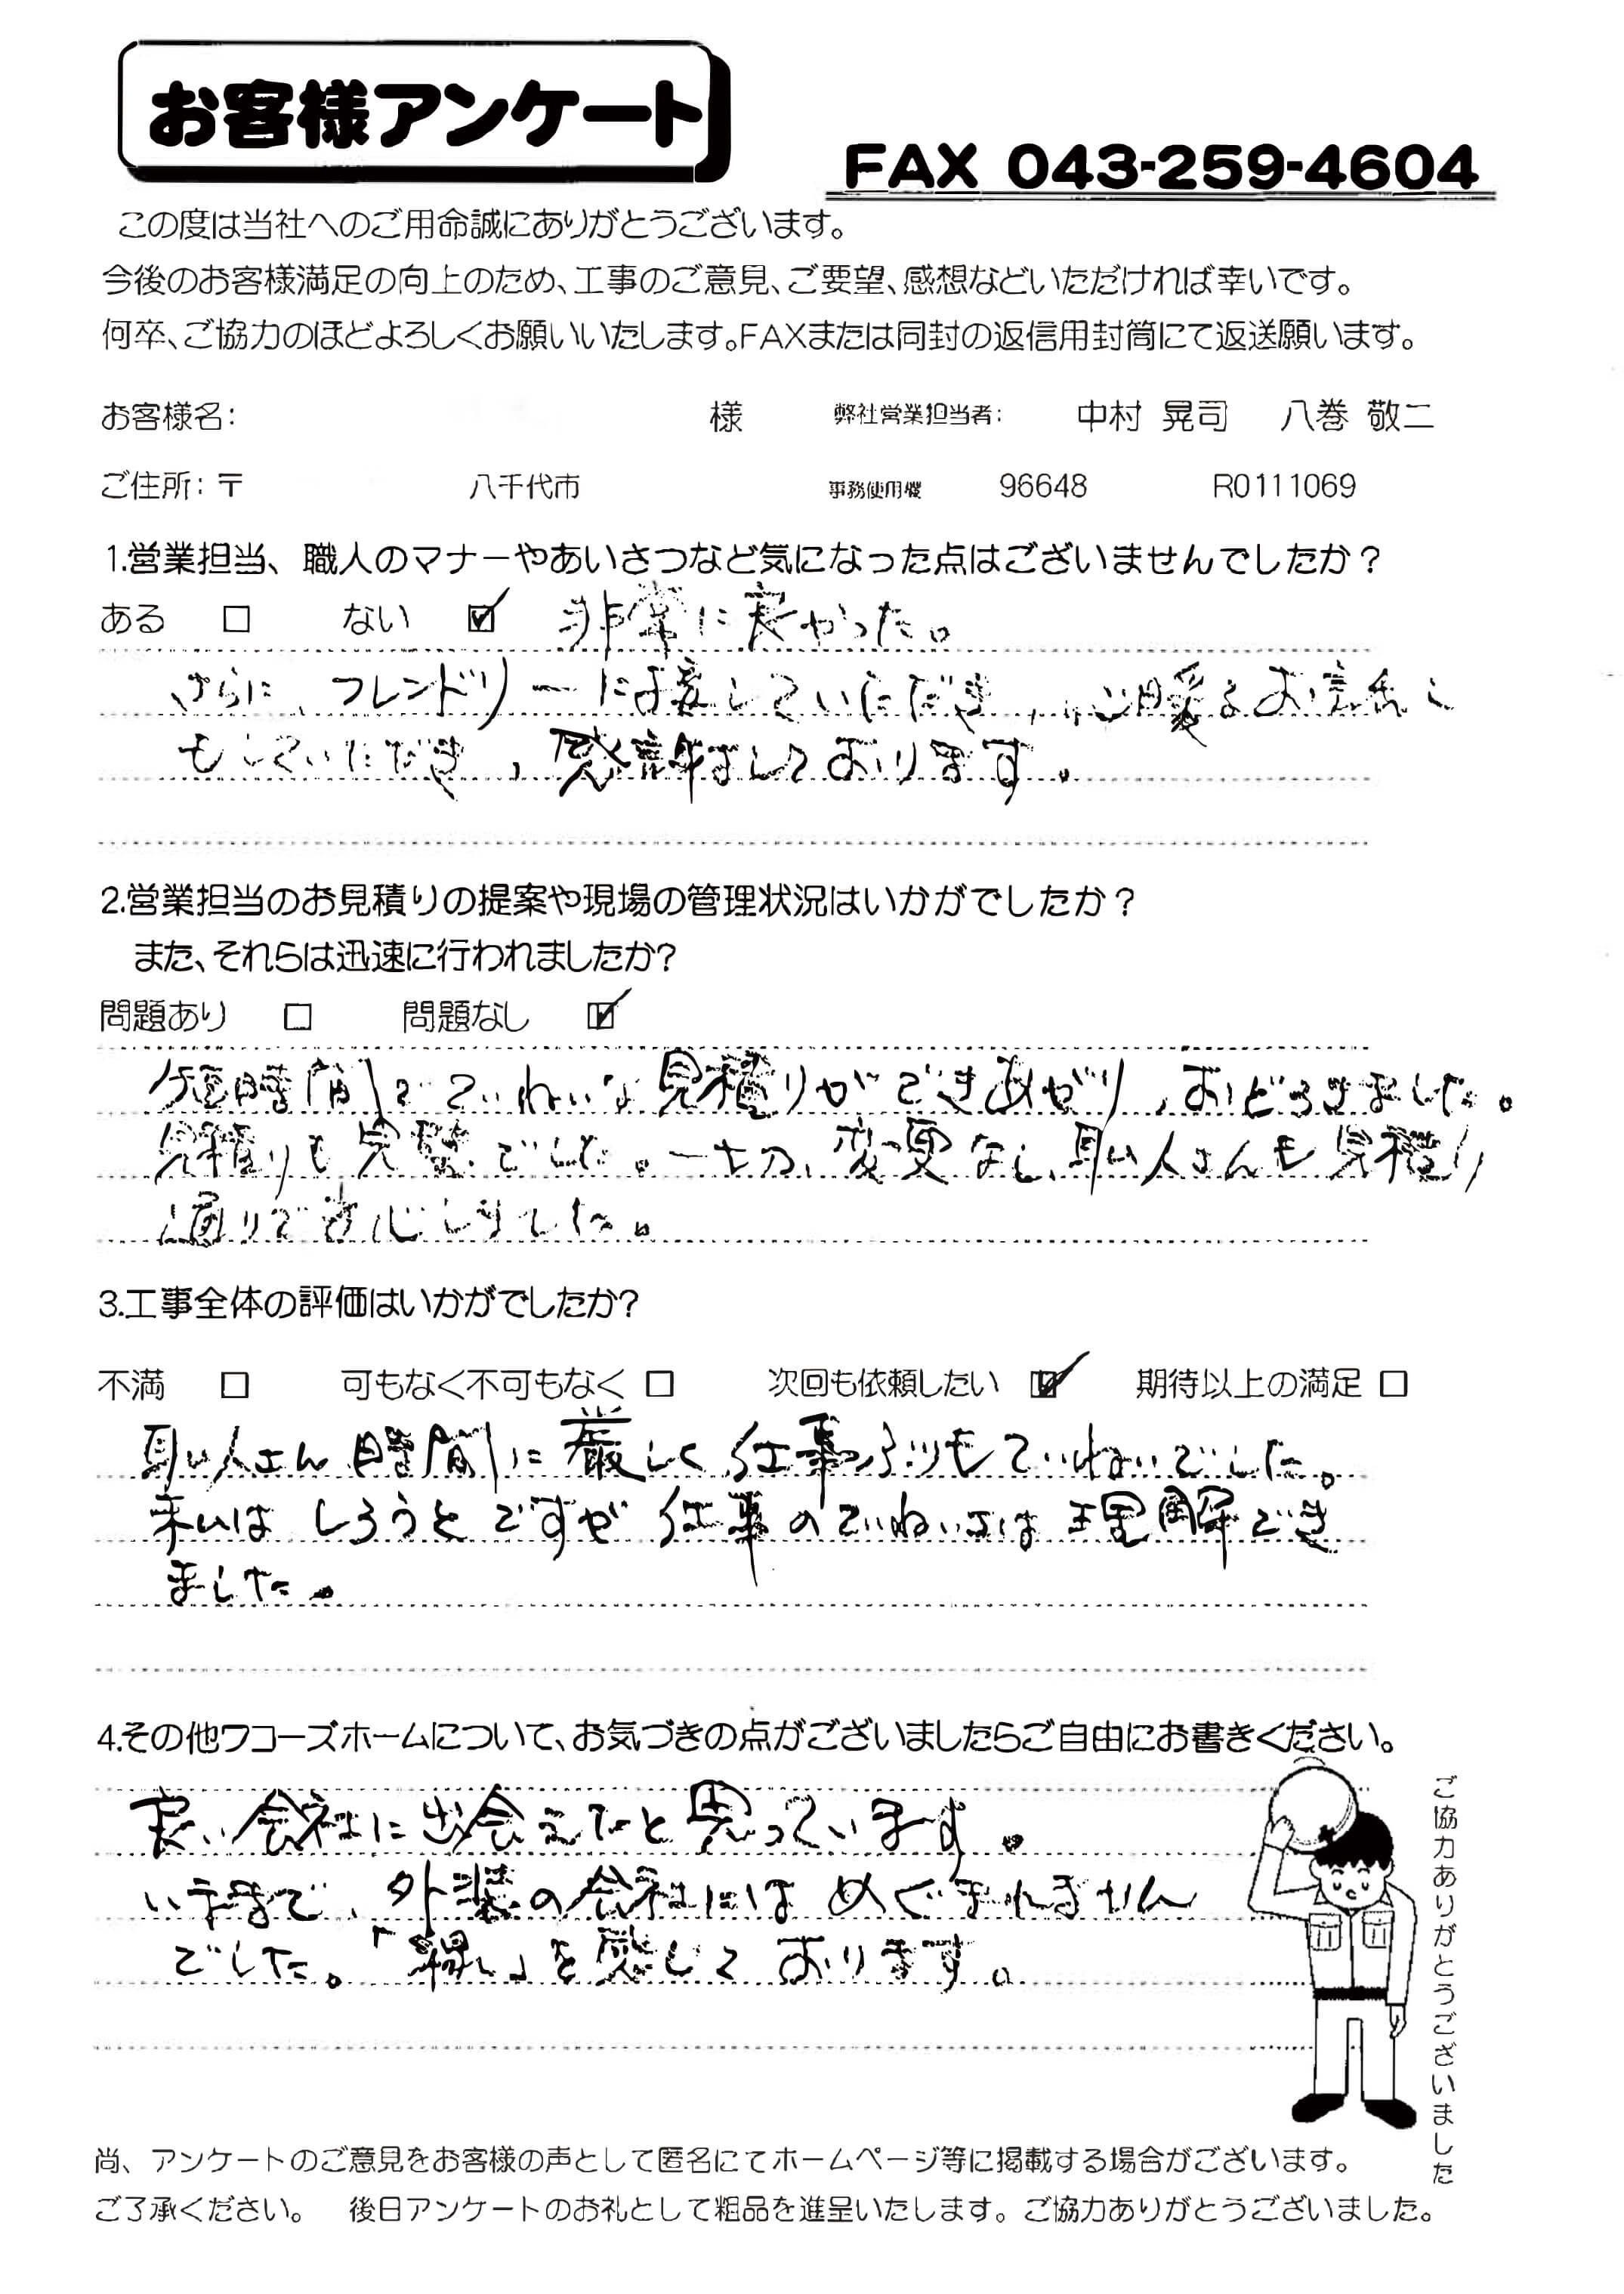 お客様アンケート
FAX 043-259-4604
この度は当社へのご用命誠にありがとうございます。
今後のお客様満足の向上のため、工事のご意見、ご要望、感想などいただければ幸いです。
何卒、ご協力のほどよろしくお願いいたします。FAXまたは同封の返信用封筒にて返送願います。
お客様名： 様 弊社営業担当者： 中村 晃司 八巻 敬二
ご住所：〒 八千代市 事務使用欄 96648 R0111069
1.営業担当、職人のマナーやあいさつなど気になった点はございませんでしたか？
ある □ ない ☑ 非常に良かった。
さらに、フレンドリーに接していただき、心暖まるお言葉
もしていただき、感謝しております。
2.営業担当のお見積りの提案や現場の管理状況はいかがでしたか？
また、それらは迅速に行われましたか?
問題あり □ 問題なし ☑
短時間でていねいな見積りができあがり、おどろきました。
見積りも完璧でした。一切、変更なし、職人さんも見積り
通りで安心しました。
3.工事全体の評価はいかがでしたか?
不満 □ 可もなく不可もなく □ 次回も依頼したい ☑ 期待以上の満足 □
職人さん時間に厳しく仕事ぶりもていねいでした。
私は しろうとですが 仕事のていねいさは理解でき
ました。
4.その他ワコーズホームについて、お気づきの点がございましたらご自由にお書きください。
良い会社に出会えたと思っています。
いままで、外装の会社には めぐまれません
でした。「縁」を感じております。
ご協力ありがとうございました
尚、アンケートのご意見をお客様の声として匿名にてホームページ等に掲載する場合がございます。
ご了承ください。 後日アンケートのお礼として粗品を進呈いたします。ご協力ありがとうございました。